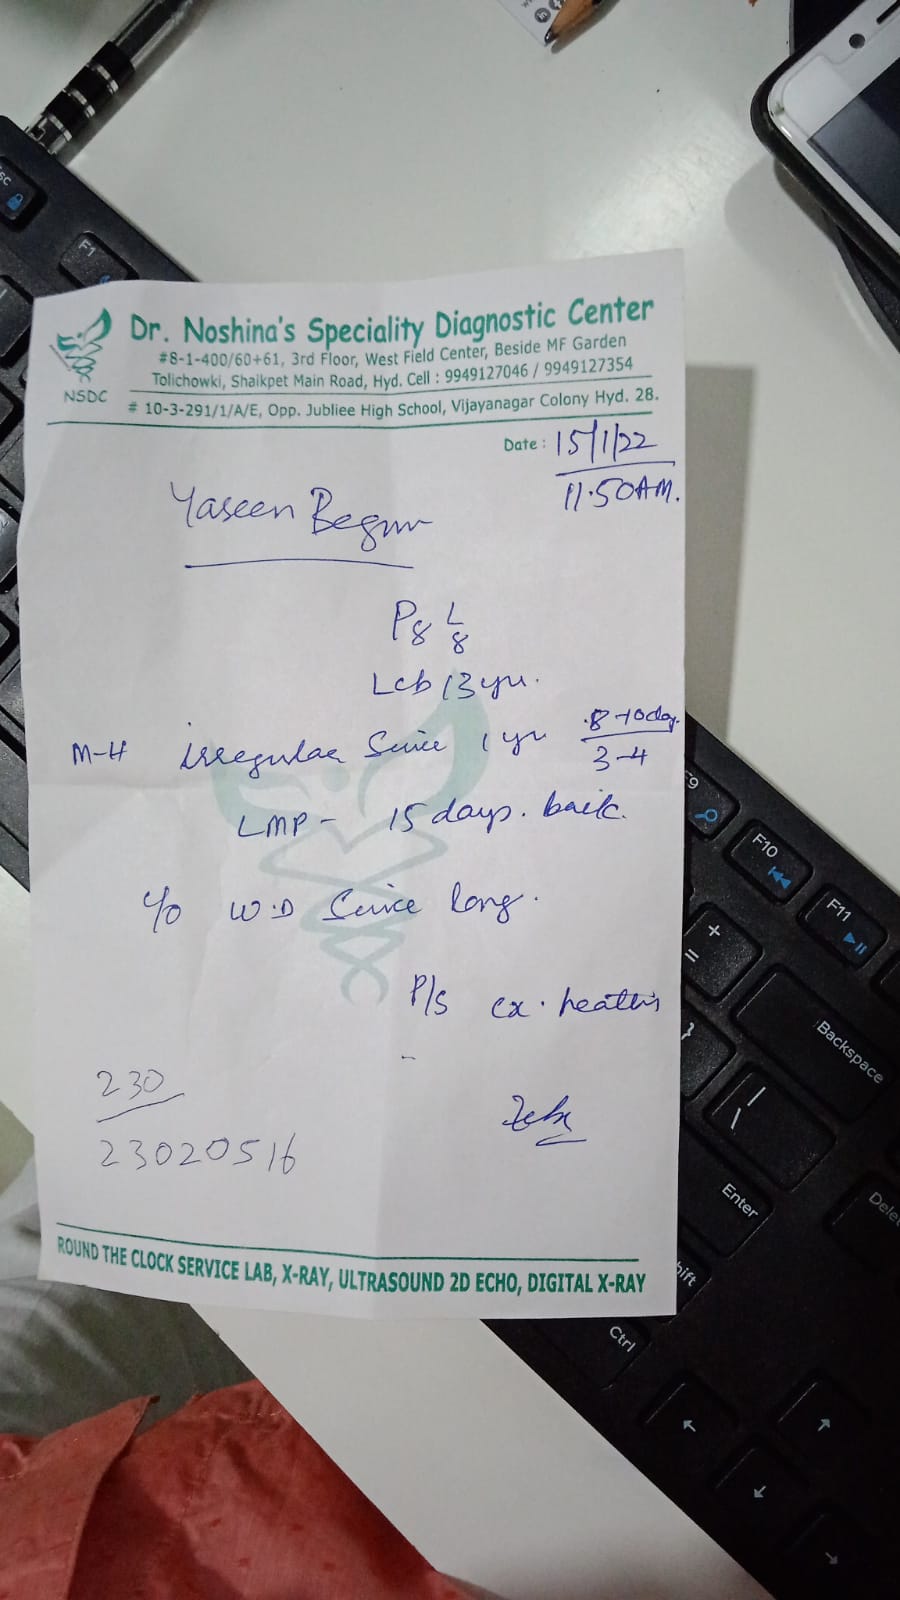 Dr. Noshina's Speciality Diagnostic Center
#8-1-400/60+61, 3rd Floor, West Field Center, Beside MF Garden
Tolichowki, Shaikpet Main Road, Hyd. Cell : 9949127046 / 9949127354
NSDC
# 10-3-291/1/A/E, Opp. Jubliee High School, Vijayanagar Colony Hyd. 28.
Date : 15/1/22
11.50AM.
Yaseen Begum
P8 L8
Lcb 13 yr.
M-H irregular Since 1 yr 8-10day. / 3-4
LMP - 15 days. back.
c/o W.D Since long.
P/s cx. healthy
230
23020516
ROUND THE CLOCK SERVICE LAB, X-RAY, ULTRASOUND 2D ECHO, DIGITAL X-RAY
F1
F9
F10
F11
+
=
Backspace
}
|
\
Enter
Shift
Ctrl